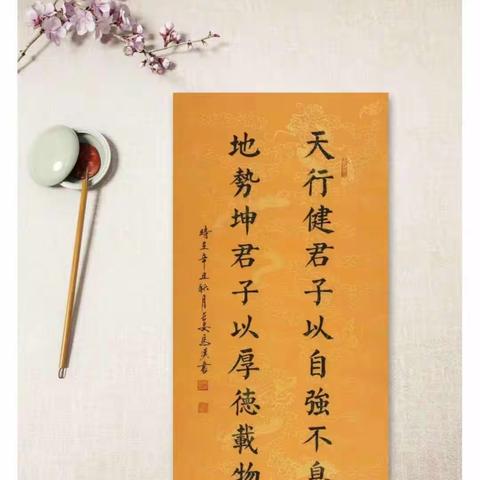 天行健君子以自強不息
地勢坤君子以厚德載物
時至辛丑秋月